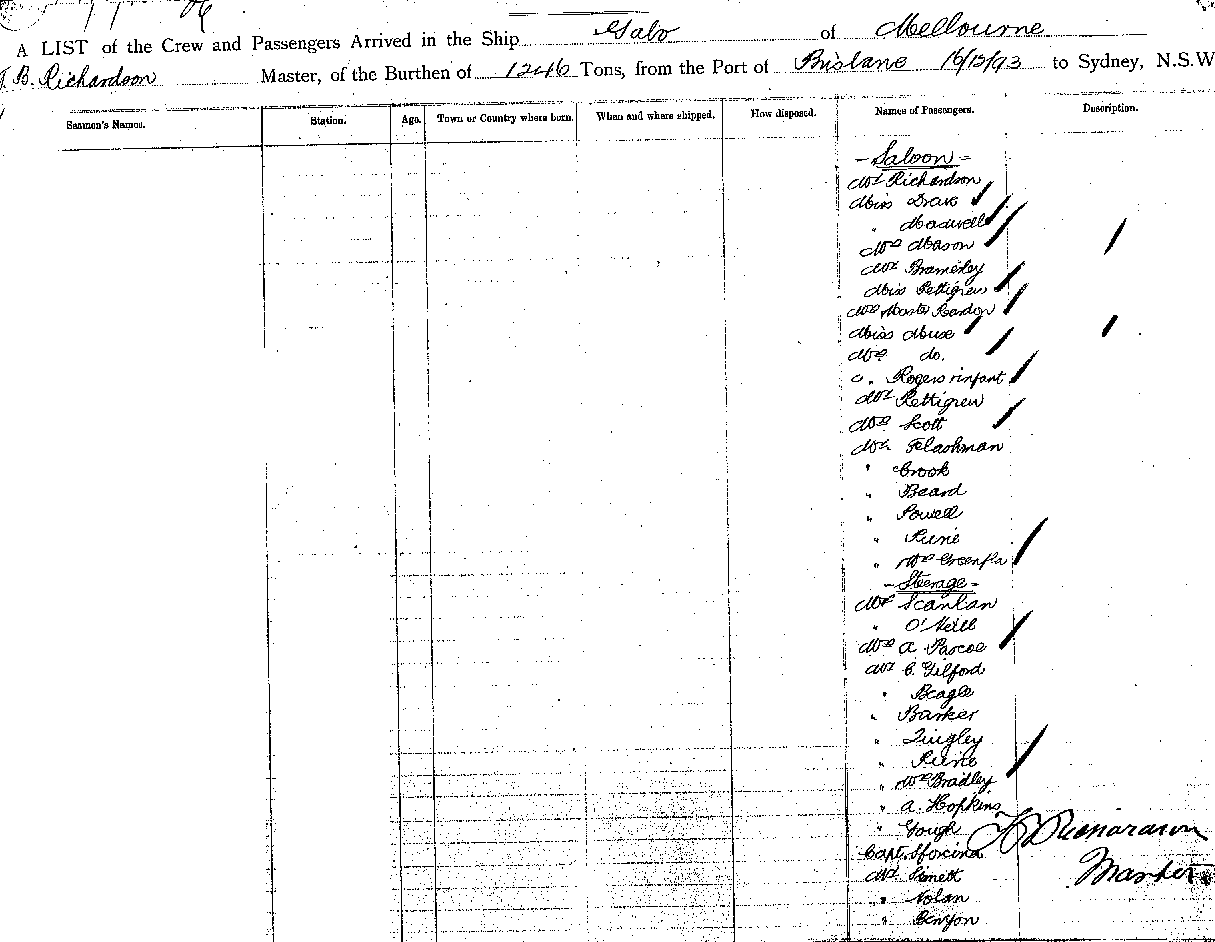 A LIST of the Crew and Passengers Arrived in the Ship Gabo of Melbourne
J. B. Richardson Master, of the Burthen of 1246 Tons, from the Port of Brisbane 16/12/93 to Sydney, N.S.W
Seamen's Names. Station. Age. Town or Country where born. When and where shipped. How disposed. Names of Passengers. Description.
- Saloon -
Mr Richardson
Miss Drake
" Maxwell
Mrs Mason
Mr Bramley
Miss Pettigrew
Mrs Master Reardon
Miss Muse
Mrs do.
" Rogers & infant
Mr Pettigrew
Mrs Scott
Mr Flashman
" Crook
" Beard
" Powell
" Pirie
" Mrs
- Steerage -
Mr Scanlan
" O'Neill
Mrs A. Pascoe
Mr C. Gilford
" Beagle
" Barker
" Tingley
" Pirie
" Mrs Bradley
" A. Hopkins
" Gough
Capt. Sforcina
Mr Sinett
" Nolan
" Benyon
J B Richardson
Master